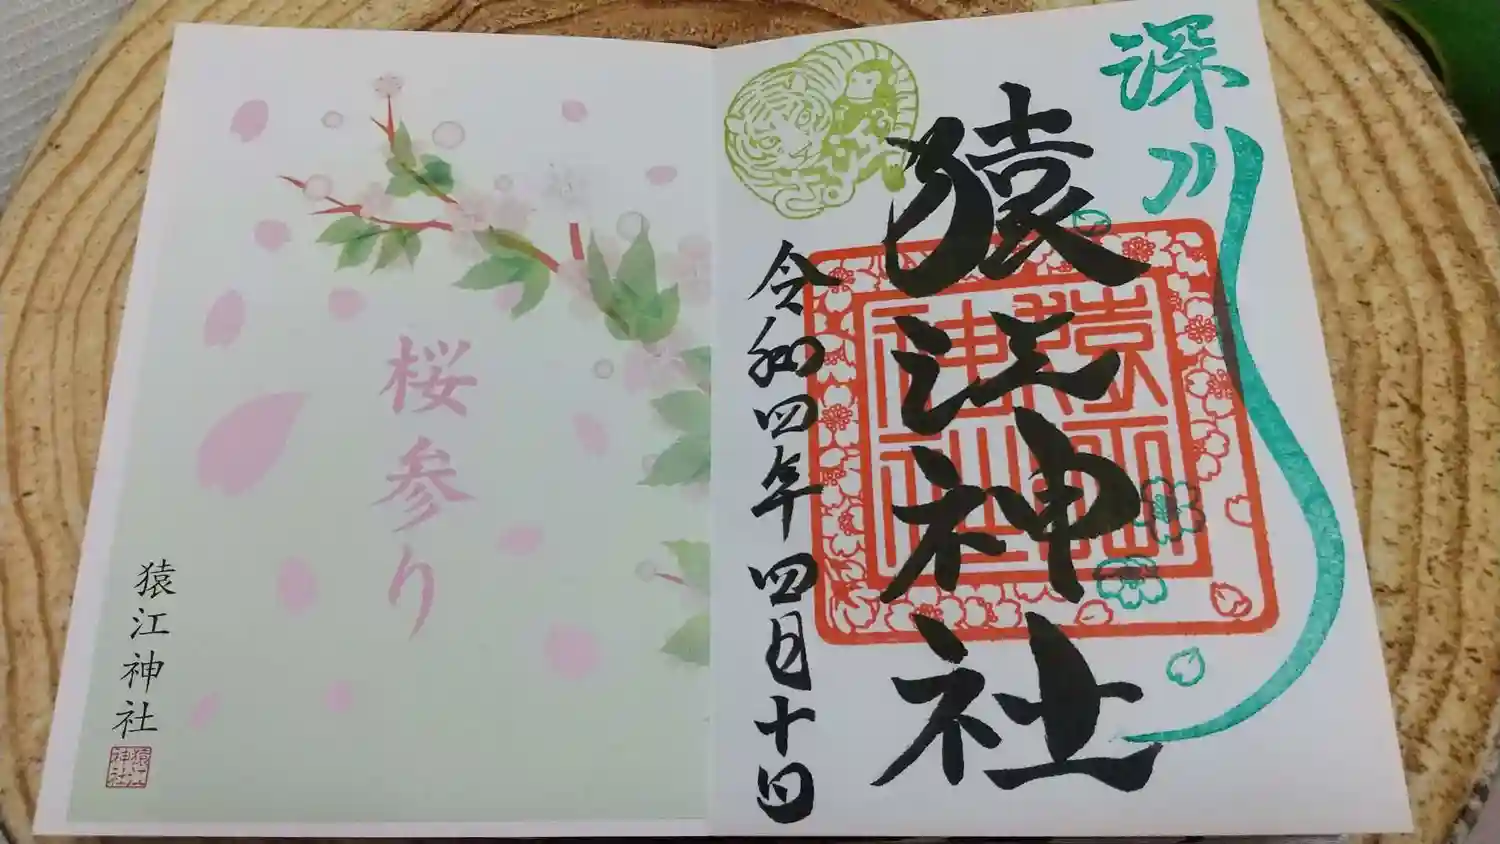 深川
猿江神社
令和四年四月十日
猿江神社
桜参り
猿江神社
猿江神社